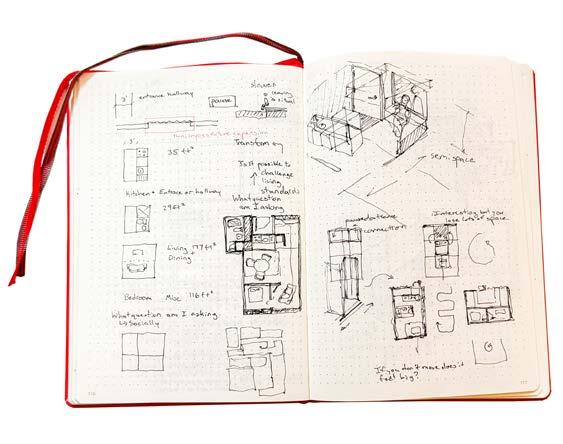 3'
entrance hallway
pause
slower
35 ft²
Transform
Is it possible to
challenge
living
standards
What question
am I asking
Kitchen + Entrace or hallway
29 ft²
Living 177 ft²
+
Dining
Bedroom Misc 116 ft²
What question am I asking
socially
116
semi space
connection
interesting but you
lose lots of space
If you don't move does it
feel big?
117